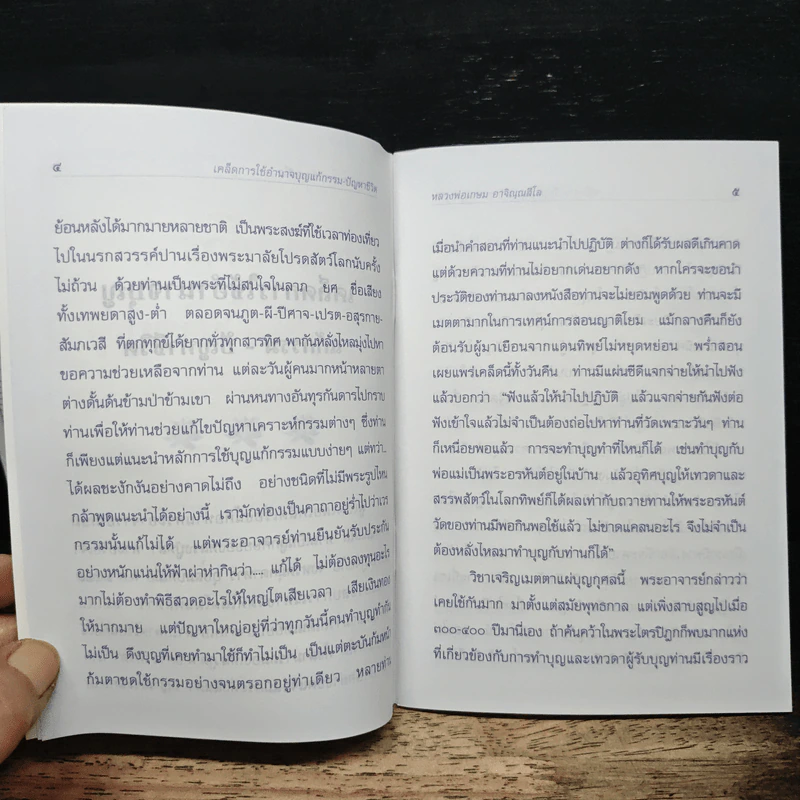 ๔
เคล็ดการใช้อำนาจบุญแก้กรรม-ปัญหาชีวิต
ย้อนหลังได้มากมายหลายชาติ เป็นพระสงฆ์ที่ใช้เวลาท่องเที่ยว
ไปในนรกสวรรค์ปานเรื่องพระมาลัยโปรดสัตว์โลกนับครั้ง
ไม่ถ้วน ด้วยท่านเป็นพระที่ไม่สนใจในลาภ ยศ ชื่อเสียง
ทั้งเทพยดาสูง-ต่ำ ตลอดจนภูต-ผี-ปีศาจ-เปรต-อสุรกาย-
สัมภเวสี ที่ตกทุกข์ได้ยากทั่วทุกสารทิศ พากันหลั่งไหลมุ่งไปหา
ขอความช่วยเหลือจากท่าน แต่ละวันผู้คนมากหน้าหลายตา
ต่างดั้นด้นข้ามป่าข้ามเขา ผ่านหนทางอันทุรกันดารไปกราบ
ท่านเพื่อให้ท่านช่วยแก้ไขปัญหาเคราะห์กรรมต่างๆ ซึ่งท่าน
ก็เพียงแต่แนะนำหลักการใช้บุญแก้กรรมแบบง่ายๆ แต่ทว่า..
ได้ผลชะงักงันอย่างคาดไม่ถึง อย่างชนิดที่ไม่มีพระรูปไหน
กล้าพูดแนะนำได้อย่างนี้ เรามักท่องเป็นคาถาอยู่ร่ำไปว่าเวร
กรรมนั้นแก้ไม่ได้ แต่พระอาจารย์ท่านยืนยันรับประกัน
อย่างหนักแน่นให้ฟ้าผ่าห่ากินว่า.... แก้ได้ ไม่ต้องลงทุนอะไร
มากไม่ต้องทำพิธีสวดอะไรให้ใหญ่โตเสียเวลา เสียเงินทอง
ให้มากมาย แต่ปัญหาใหญ่อยู่ที่ว่าทุกวันนี้คนทำบุญทำกัน
ไม่เป็น ดึงบุญที่เคยทำมาใช้ก็ทำไม่เป็น เป็นแต่ตะบันก้มหน้า
ก้มตาชดใช้กรรมอย่างจนตรอกอยู่ท่าเดียว หลายท่าน
หลวงพ่อเกษม อาจิณฺณสีโล
๕
เมื่อนำคำสอนที่ท่านแนะนำไปปฏิบัติ ต่างก็ได้รับผลดีเกินคาด
แต่ด้วยความที่ท่านไม่อยากเด่นอยากดัง หากใครจะขอนำ
ประวัติของท่านมาลงหนังสือท่านจะไม่ยอมพูดด้วย ท่านจะมี
เมตตามากในการเทศน์การสอนญาติโยม แม้กลางคืนก็ยัง
ต้อนรับผู้มาเยือนจากแดนทิพย์ไม่หยุดหย่อน พร่ำสอน
เผยแพร่เคล็ดนี้ทั้งวันคืน ท่านมีแผ่นซีดีแจกจ่ายให้นำไปฟัง
แล้วบอกว่า "ฟังแล้วให้นำไปปฏิบัติ แล้วแจกจ่ายกันฟังต่อ
ฟังเข้าใจแล้วไม่จำเป็นต้องถ่อไปหาท่านที่วัดเพราะวันๆ ท่าน
ก็เหนื่อยพอแล้ว การจะทำบุญทำที่ไหนก็ได้ เช่นทำบุญกับ
พ่อแม่เป็นพระอรหันต์อยู่ในบ้าน แล้วอุทิศบุญให้เทวดาและ
สรรพสัตว์ในโลกทิพย์ก็ได้ผลเท่ากับถวายทานให้พระอรหันต์
วัดของท่านมีพอกินพอใช้แล้ว ไม่ขาดแคลนอะไร จึงไม่จำเป็น
ต้องหลั่งไหลมาทำบุญกับท่านก็ได้"
วิชาเจริญเมตตาแผ่บุญกุศลนี้ พระอาจารย์กล่าวว่า
เคยใช้กันมาก มาตั้งแต่สมัยพุทธกาล แต่เพิ่งสาบสูญไปเมื่อ
๓๐๐-๔๐๐ ปีมานี่เอง ถ้าค้นคว้าในพระไตรปิฎกก็พบมากแห่ง
ที่เกี่ยวข้องกับการทำบุญและเทวดาผู้รับบุญท่านมีเรื่องราว